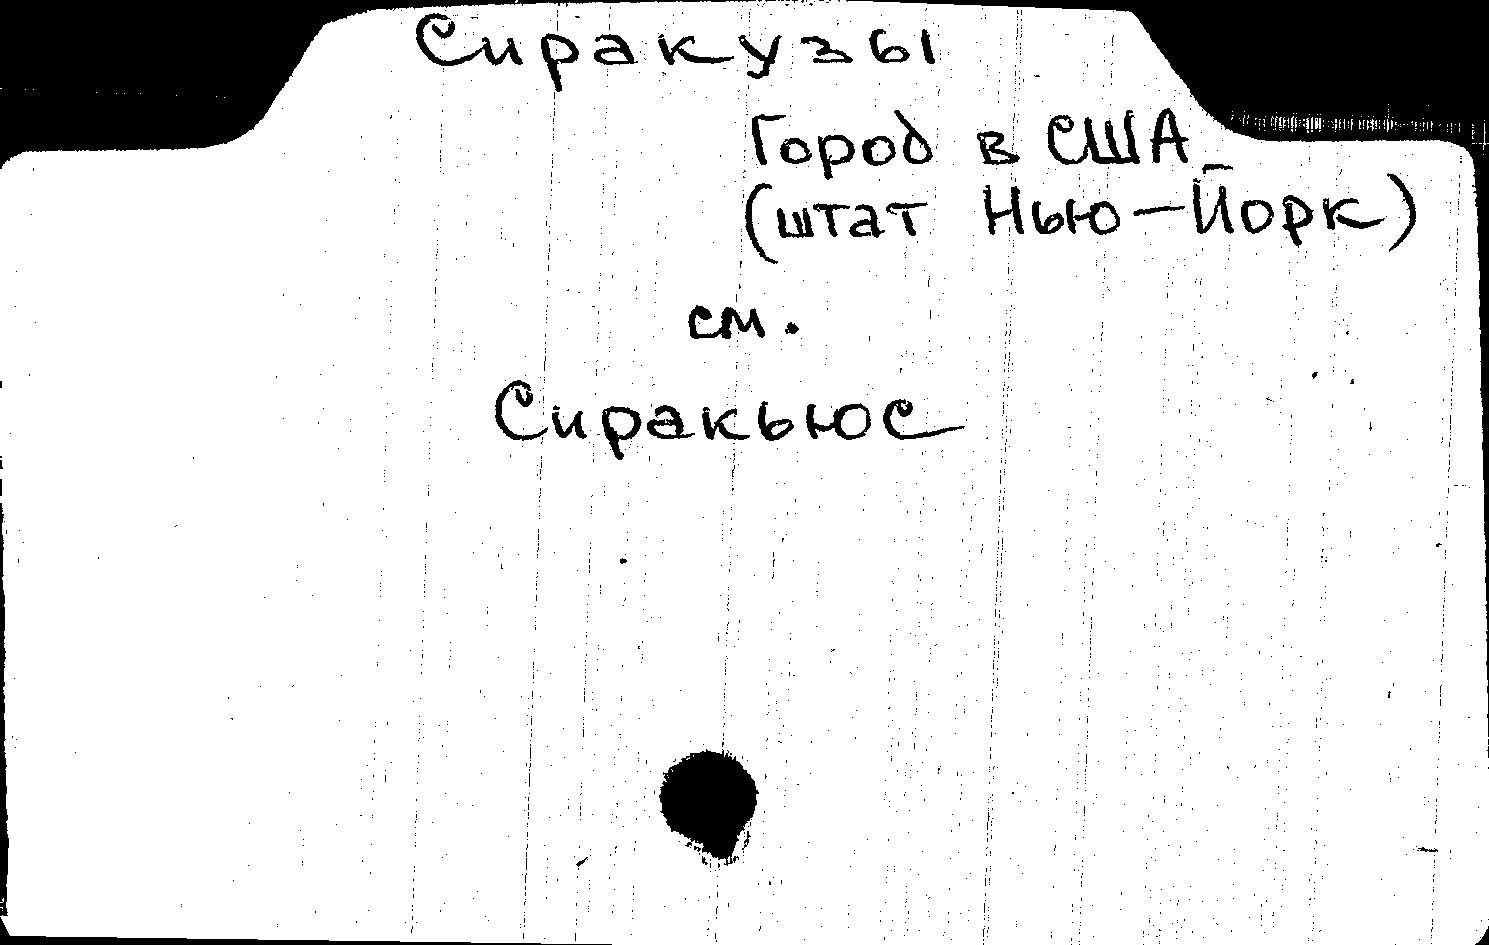 Сиракузы
Город в США
(штат Нью-Йорк)
см.
Сиракьюс